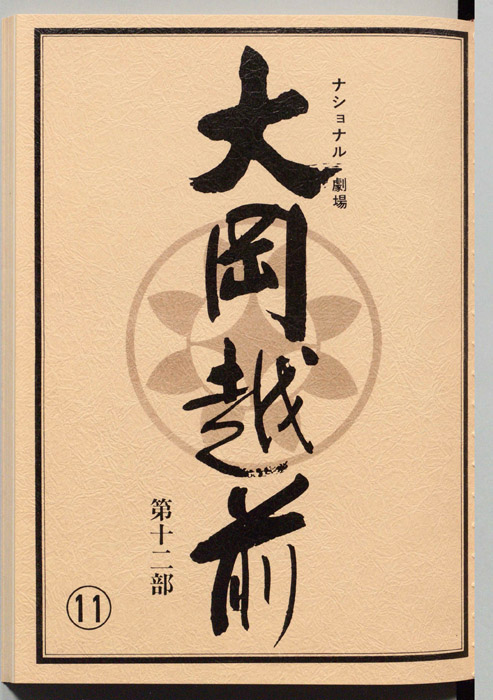 ナショナル劇場
大岡越前
第十二部
⑪